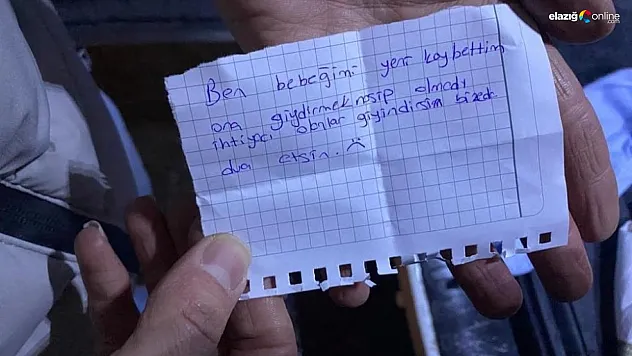 elazığ online.com
Ben bebeğimi yeni kaybettim
ona giydirmek nasip olmadı
ihtiyacı olanlar giyindirsin bizede
dua etsin.